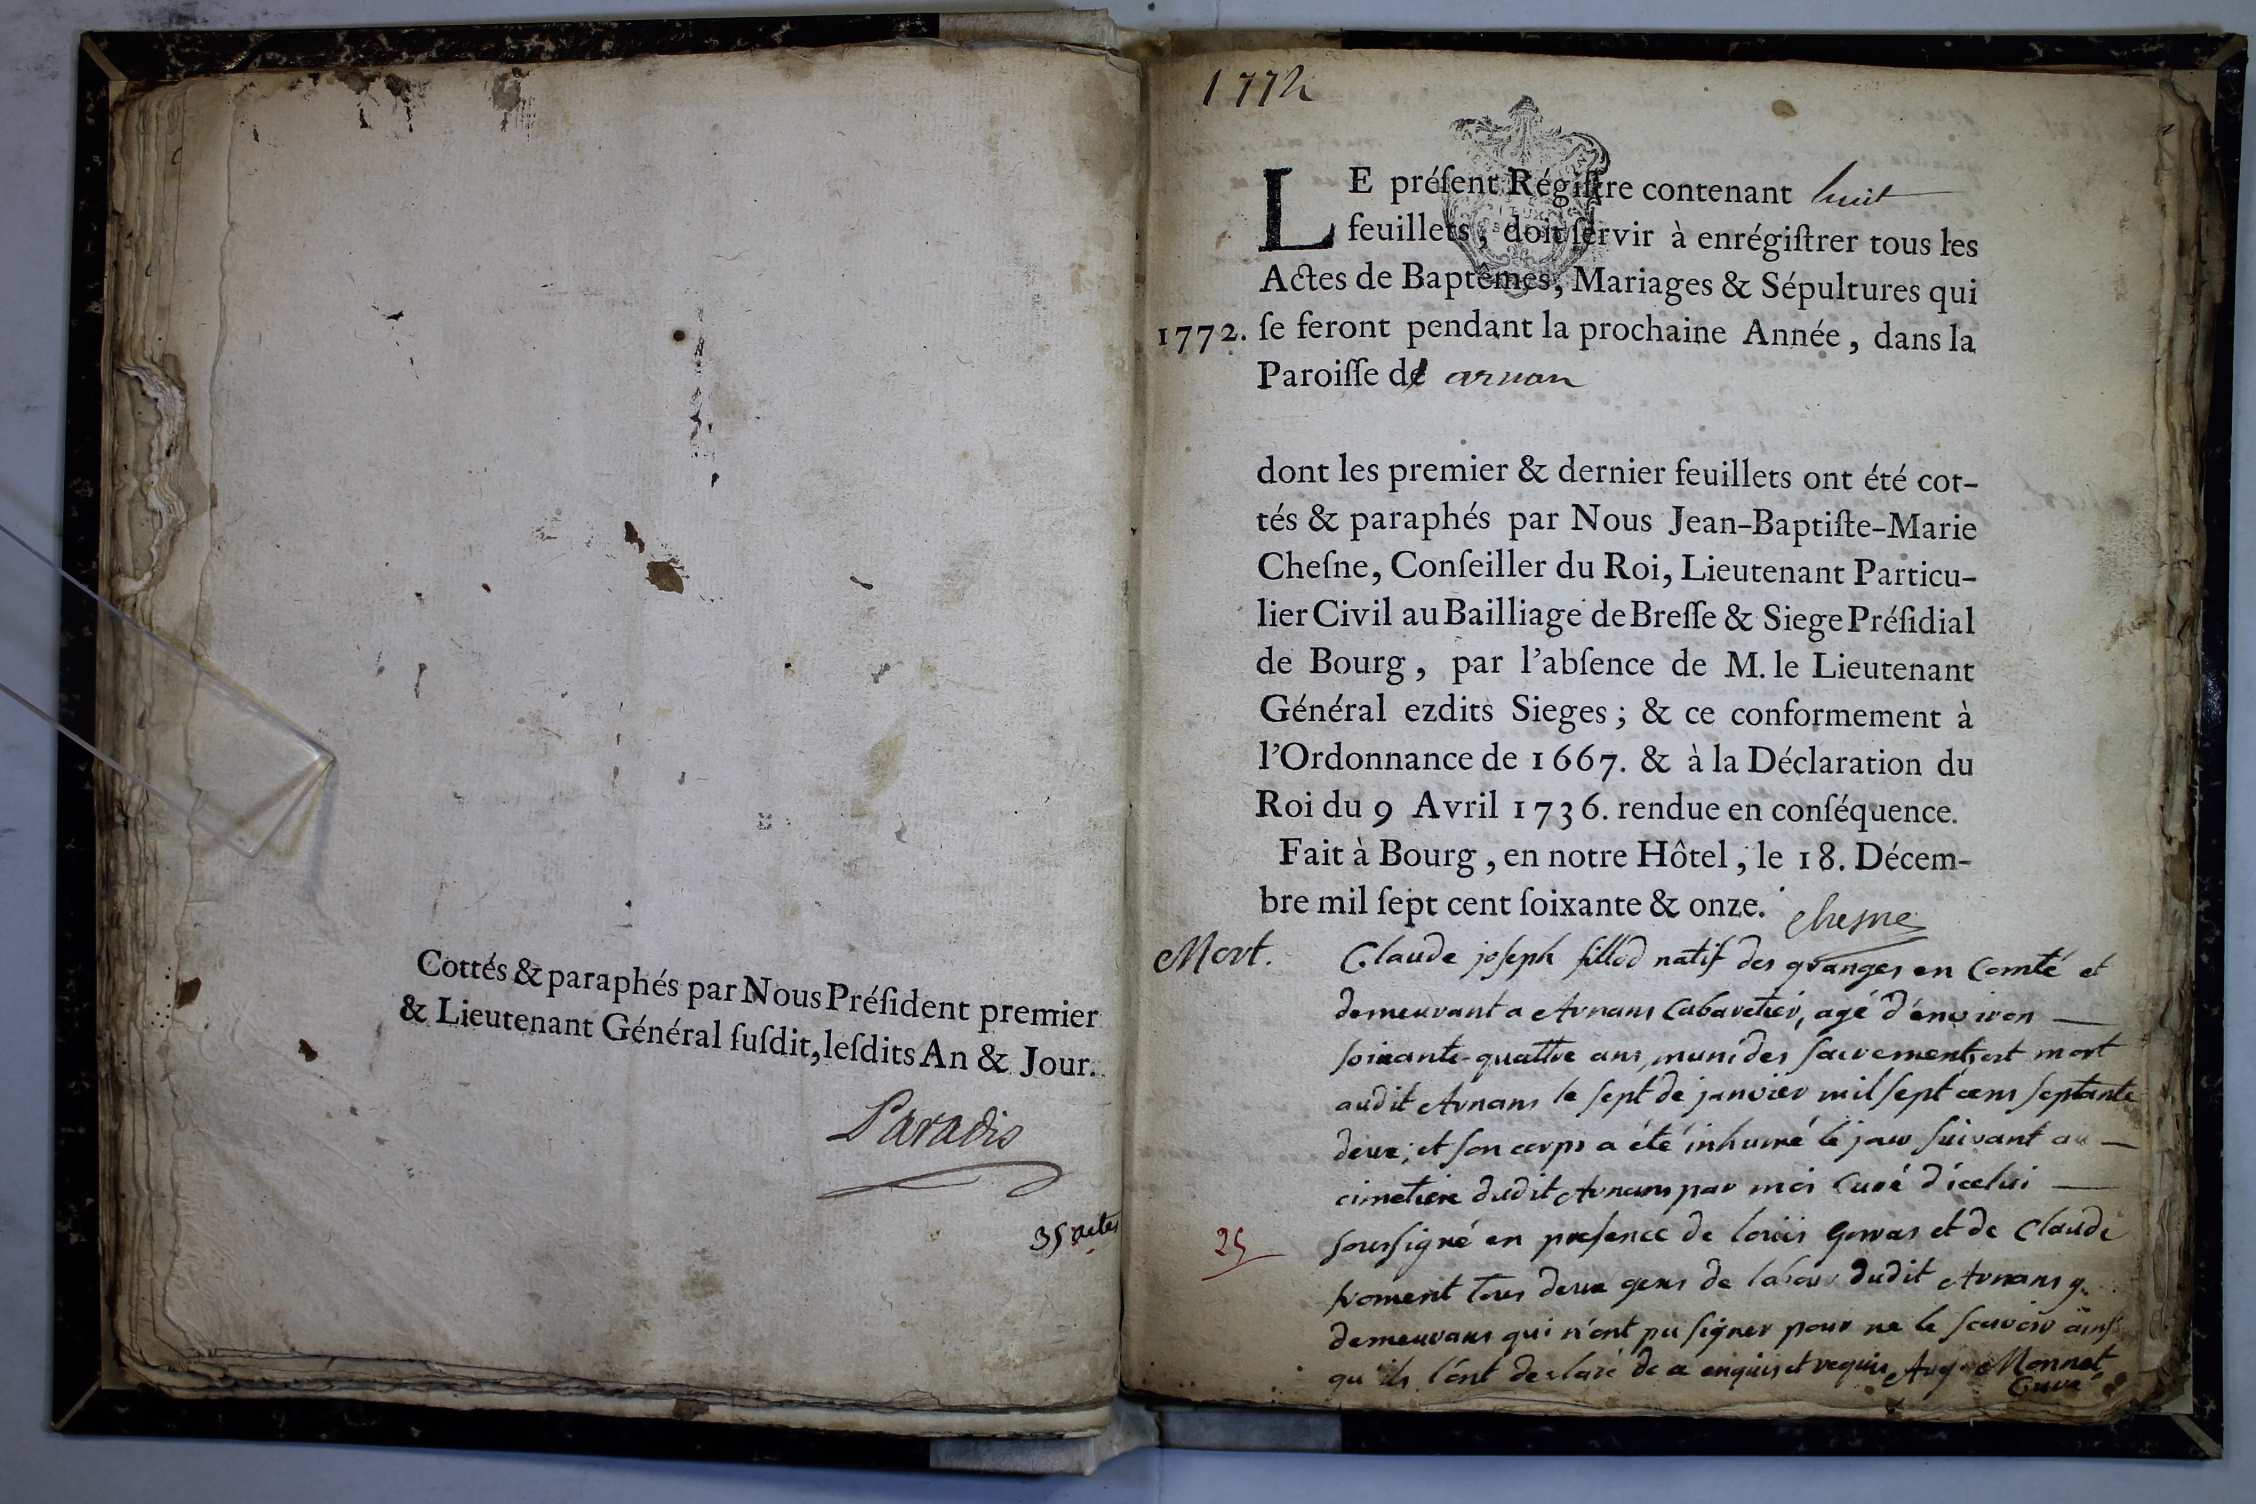 Cottés & paraphés par Nous Préſident premier
& Lieutenant Général ſuſdit, leſdits An & Jour.
Paradis
35 actes
1772
LE préſent Régiſtre contenant huit
feuillets, doit ſervir à enrégiſtrer tous les
Actes de Baptêmes, Mariages & Sépultures qui
1772. ſe feront pendant la prochaine Année, dans la
Paroiſſe de arnan
dont les premier & dernier feuillets ont été cot-
tés & paraphés par Nous Jean-Baptiſte-Marie
Cheſne, Conſeiller du Roi, Lieutenant Particu-
lier Civil au Bailliage de Breſſe & Siege Préſidial
de Bourg, par l'abſence de M. le Lieutenant
Général ezdits Sieges; & ce conformement à
l'Ordonnance de 1667. & à la Déclaration du
Roi du 9 Avril 1736. rendue en conſéquence.
Fait à Bourg, en notre Hôtel, le 18. Décem-
bre mil ſept cent ſoixante & onze. chesne
Mort. Claude joseph fillod natif des granges en Comté et
demeurant a Arnans Cabaretier, agé d'environ
soixante-quattre ans, muni des sacrements, est mort
audit Arnans le sept de janvier mil sept cens septante
deux; et son corps a été inhumé le jour suivant au
cimetiere dudit Arnans par moi Curé d'icelui
25 soussigné en presence de louis Gorras et de Claude
froment tous deux gens de labour dudit Arnans y
demeurans qui n'ont pu signer pour ne le scavoir ainsi
qu'ils l'ont declaré de ce enquis et requis Monnet
Curé